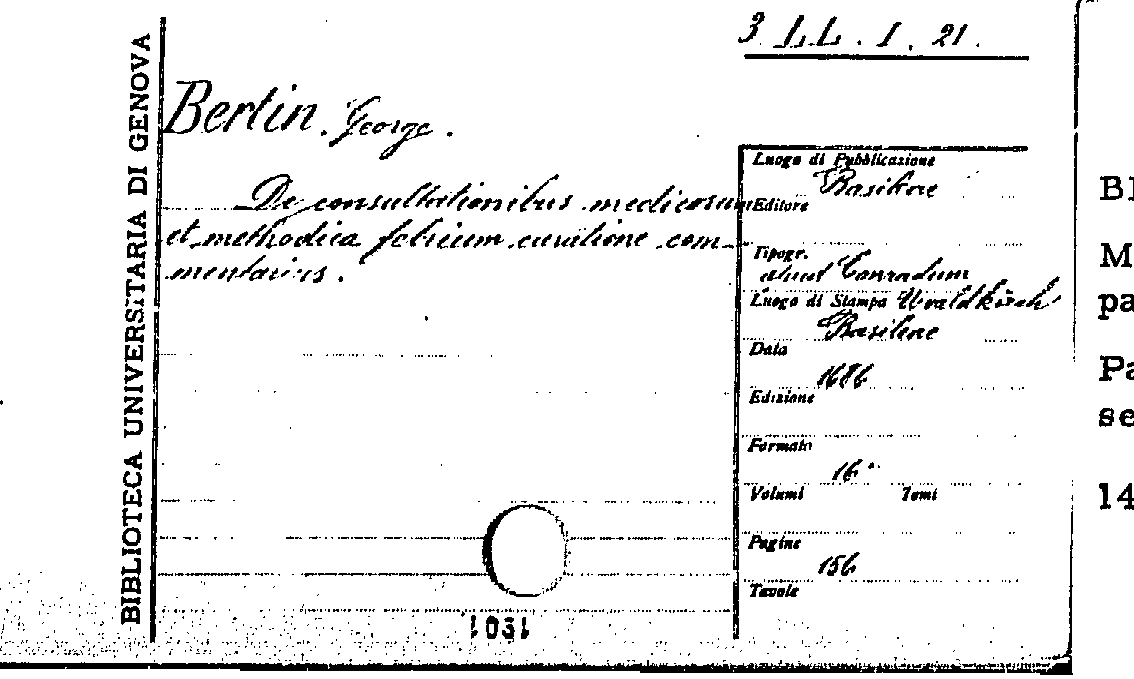 3 LL. I. 21.
BIBLIOTECA UNIVERSITARIA DI GENOVA
Bertin. George.
De consultationibus medicorum
et methodica febrium curatione com-
mentarius.
Luogo di Pubblicazione
Basileae
Editore
Tipogr.
apud Conradum
Luogo di Stampa Uvaldkirch
Basileae
Data
1686
Edizione
Formato
16°
Volumi Tomi
Pagine
156
Tavole
1031
Bl
M
pa
Pa
se
14